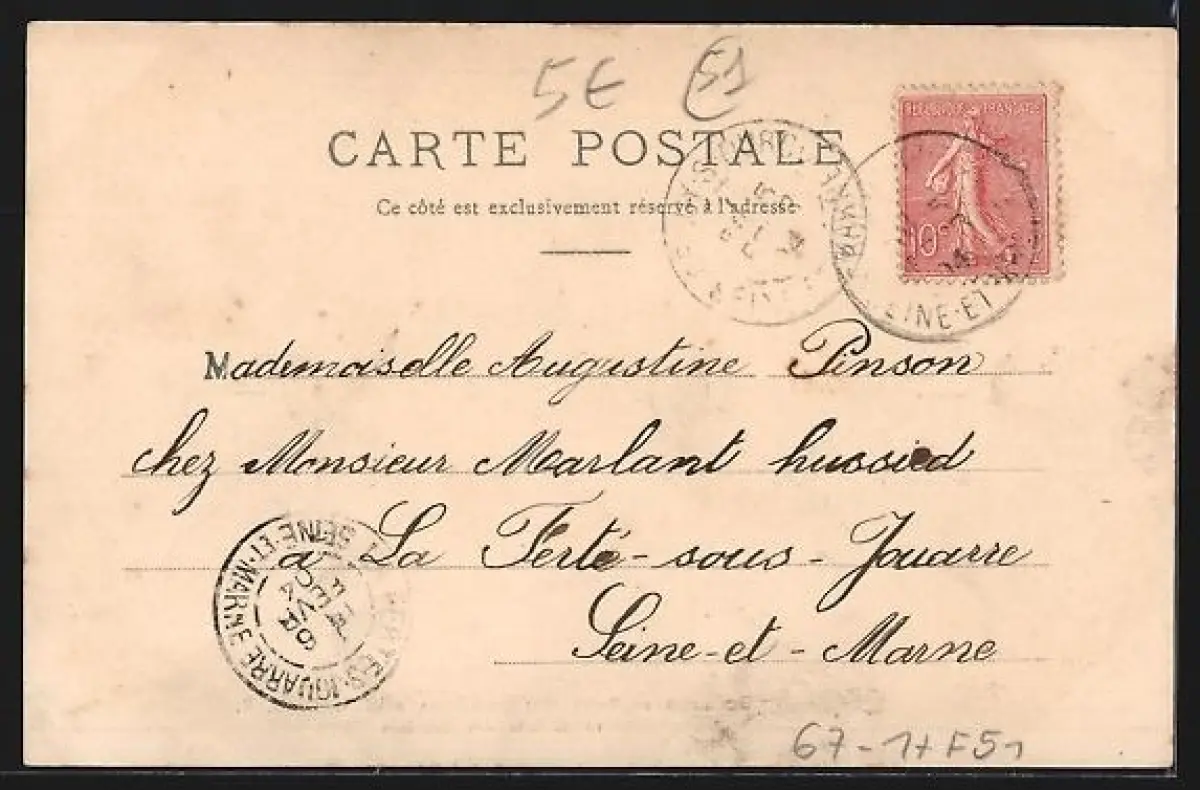 5€ 51
CARTE POSTALE
Ce côté est exclusivement réservé à l'adresse
REPUBLIQUE FRANÇAISE
10c
SEINE-ET-
Mademoiselle Augustine Pinson
chez Monsieur Marlant hussied
à La Ferté-sous-Jouarre
Seine-et-Marne
LA FERTÉ-S-JOUARRE SEINE-ET-MARNE
FEVR
04
67-1HF51